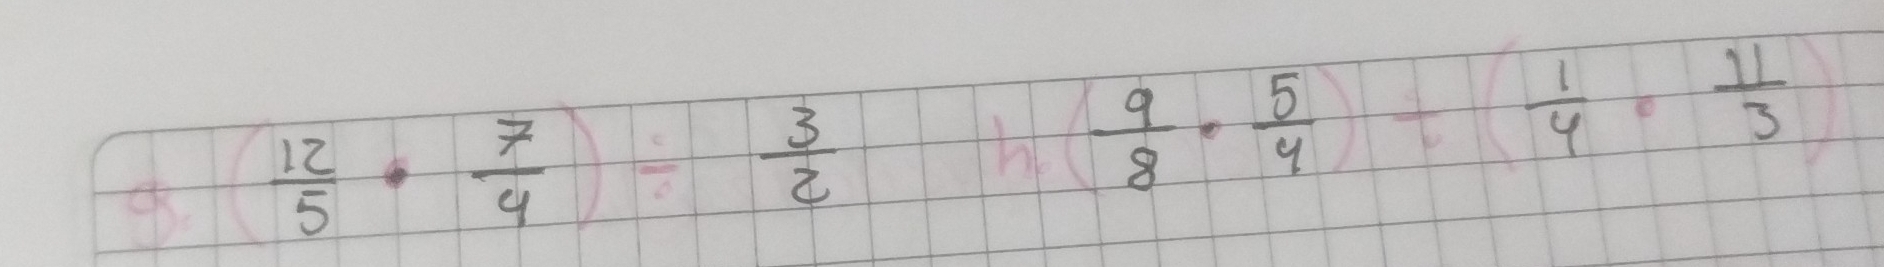 g. (12/5 • 7/4) ÷ 3/2 h. (9/8 • 5/4) ÷ (1/4 • 11/3)